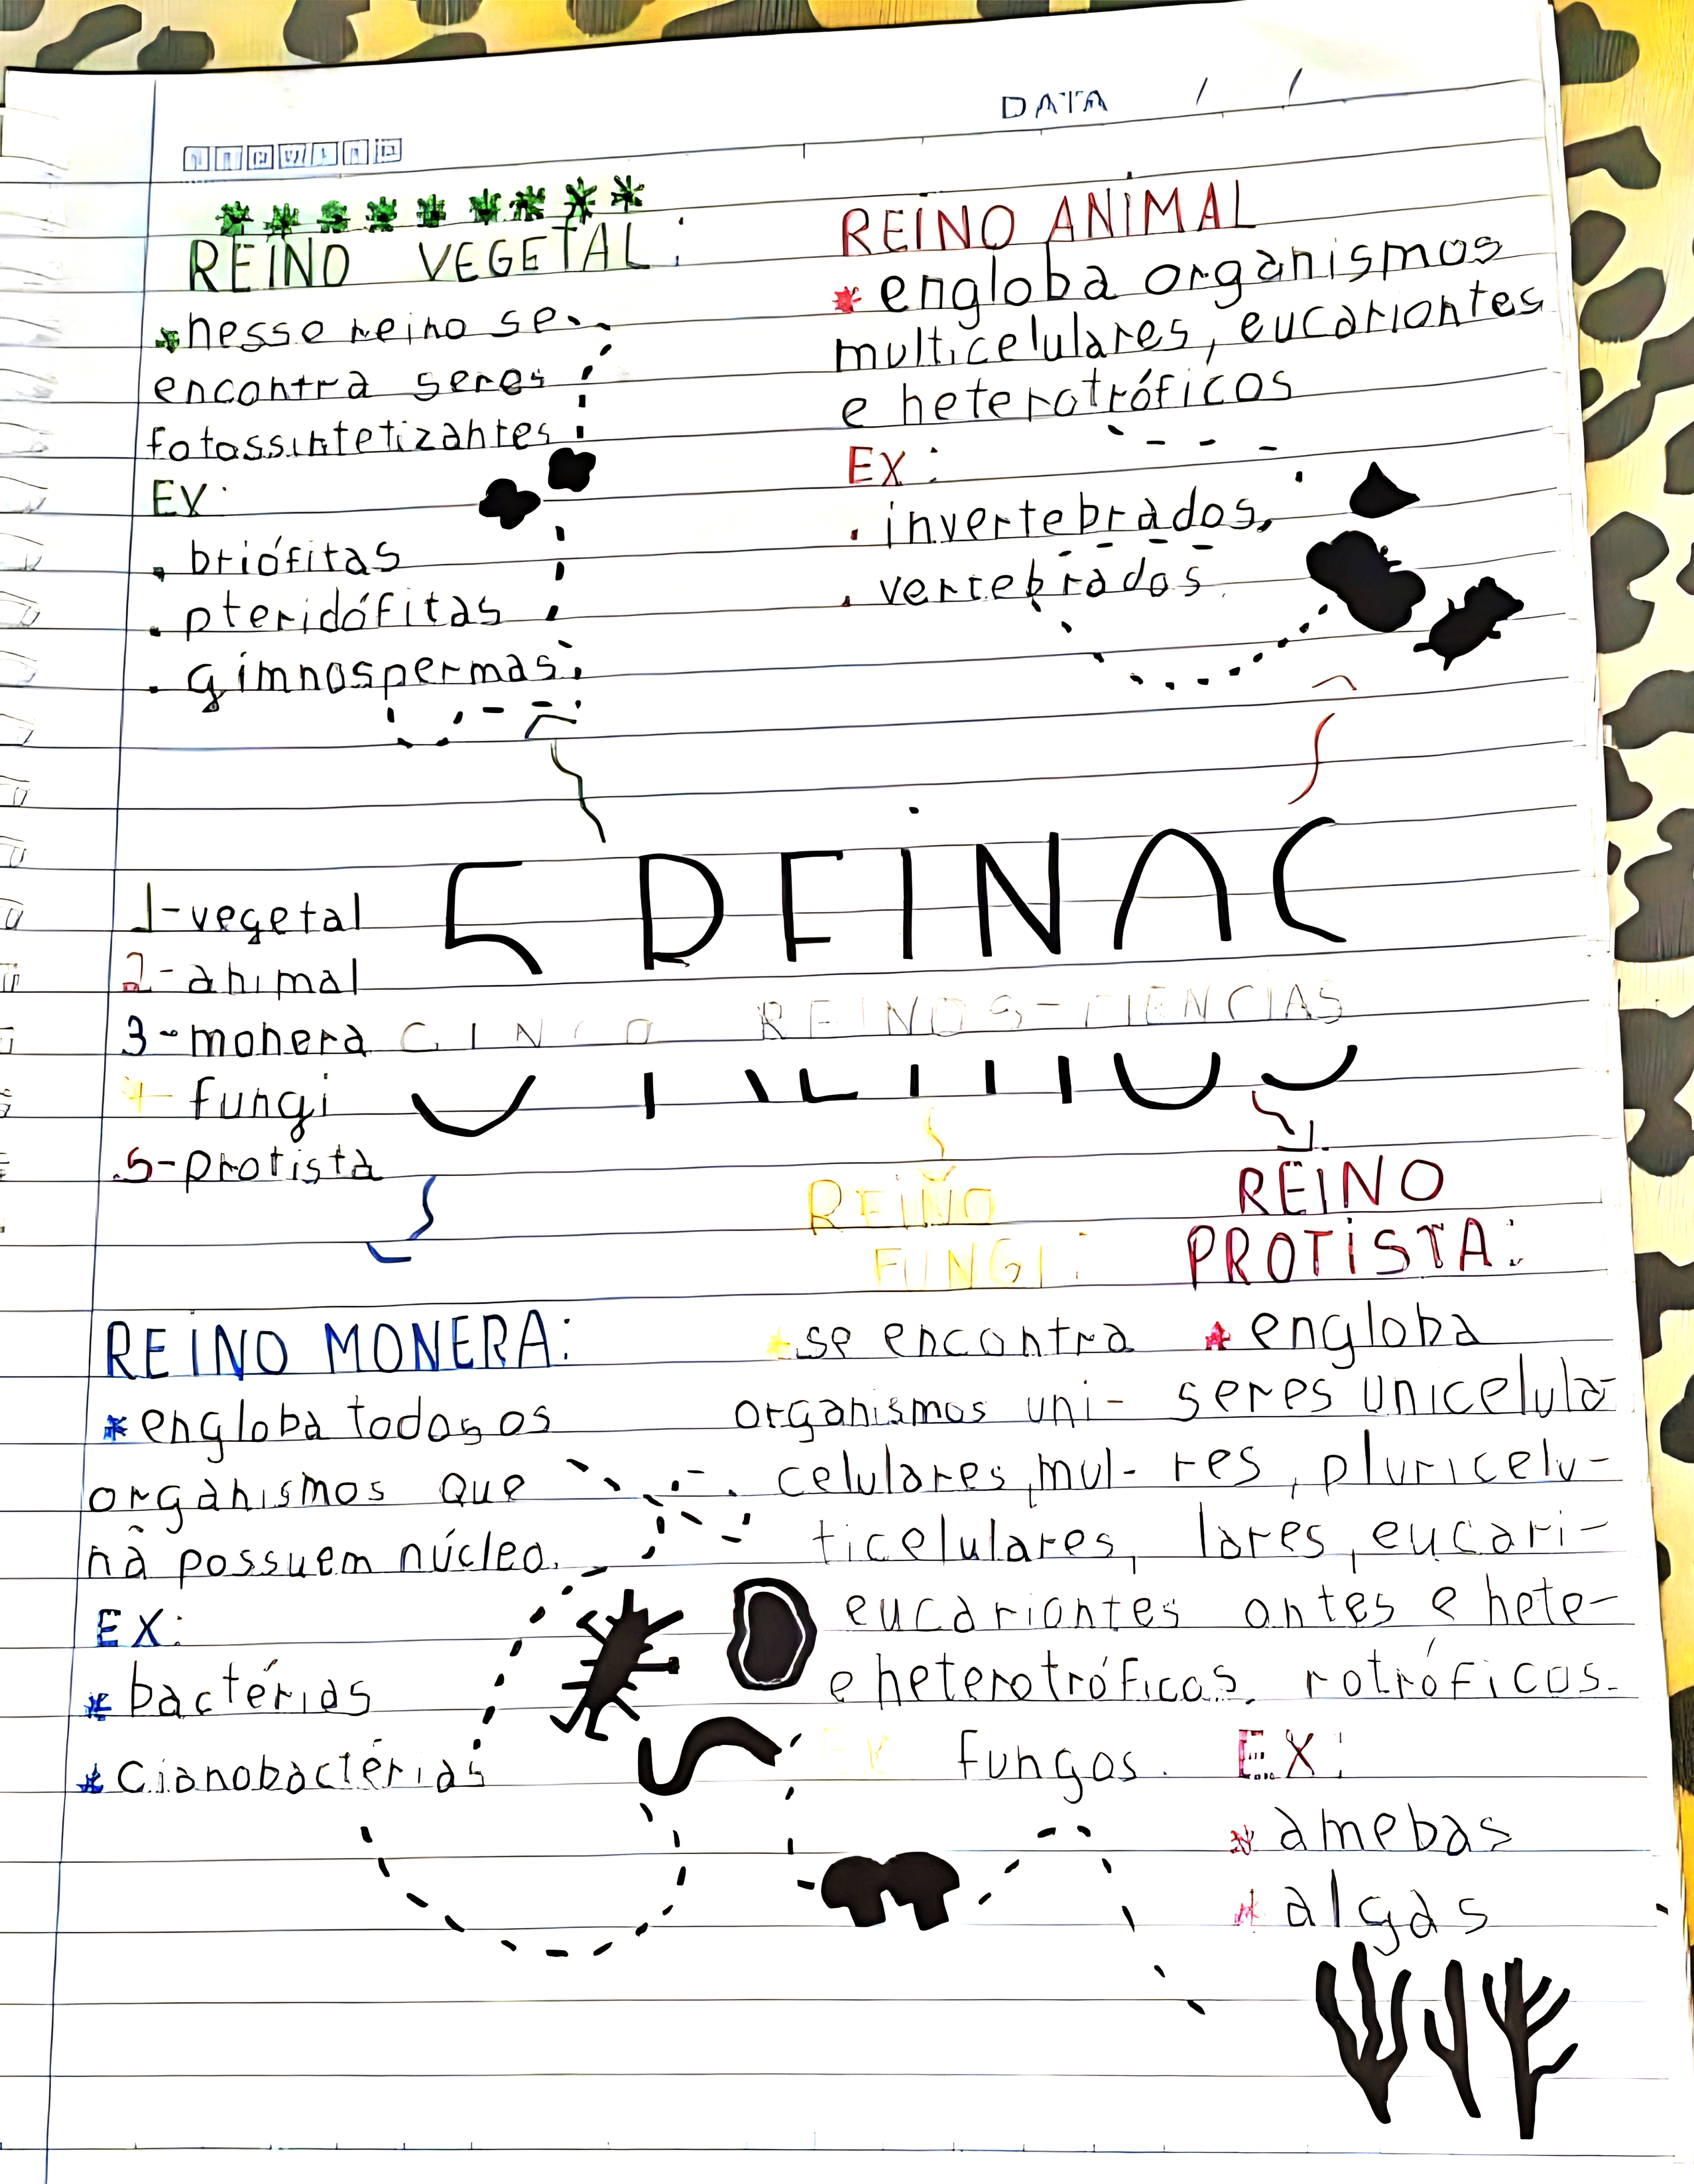 DATA / /
REINO VEGETAL:
*nesse reino se
encontra seres
fotossintetizantes
EX:
. briófitas
. pteridófitas
. gimnospermas.
REINO ANIMAL
* engloba organismos
multicelulares, eucariontes
e heterotróficos
EX:
. invertebrados,
. vertebrados.
1-vegetal
2-animal
3-monera
4-fungi
5-protista
5 REINOS
CINCO REINOS-CIENCIAS
REINO MONERA:
*engloba todos os
organismos que
nã possuem núcleo.
EX:
* bactérias
* cianobactérias
REINO
FUNGI:
*se encontra
organismos uni-
celulares, mul-
ticelulares,
eucariontes
e heterotróficos.
EX fungos.
REINO
PROTISTA:
* engloba
seres unicelula-
res, pluricelu-
lares, eucari-
ontes e hete-
rotróficos.
EX:
* amebas
* algas